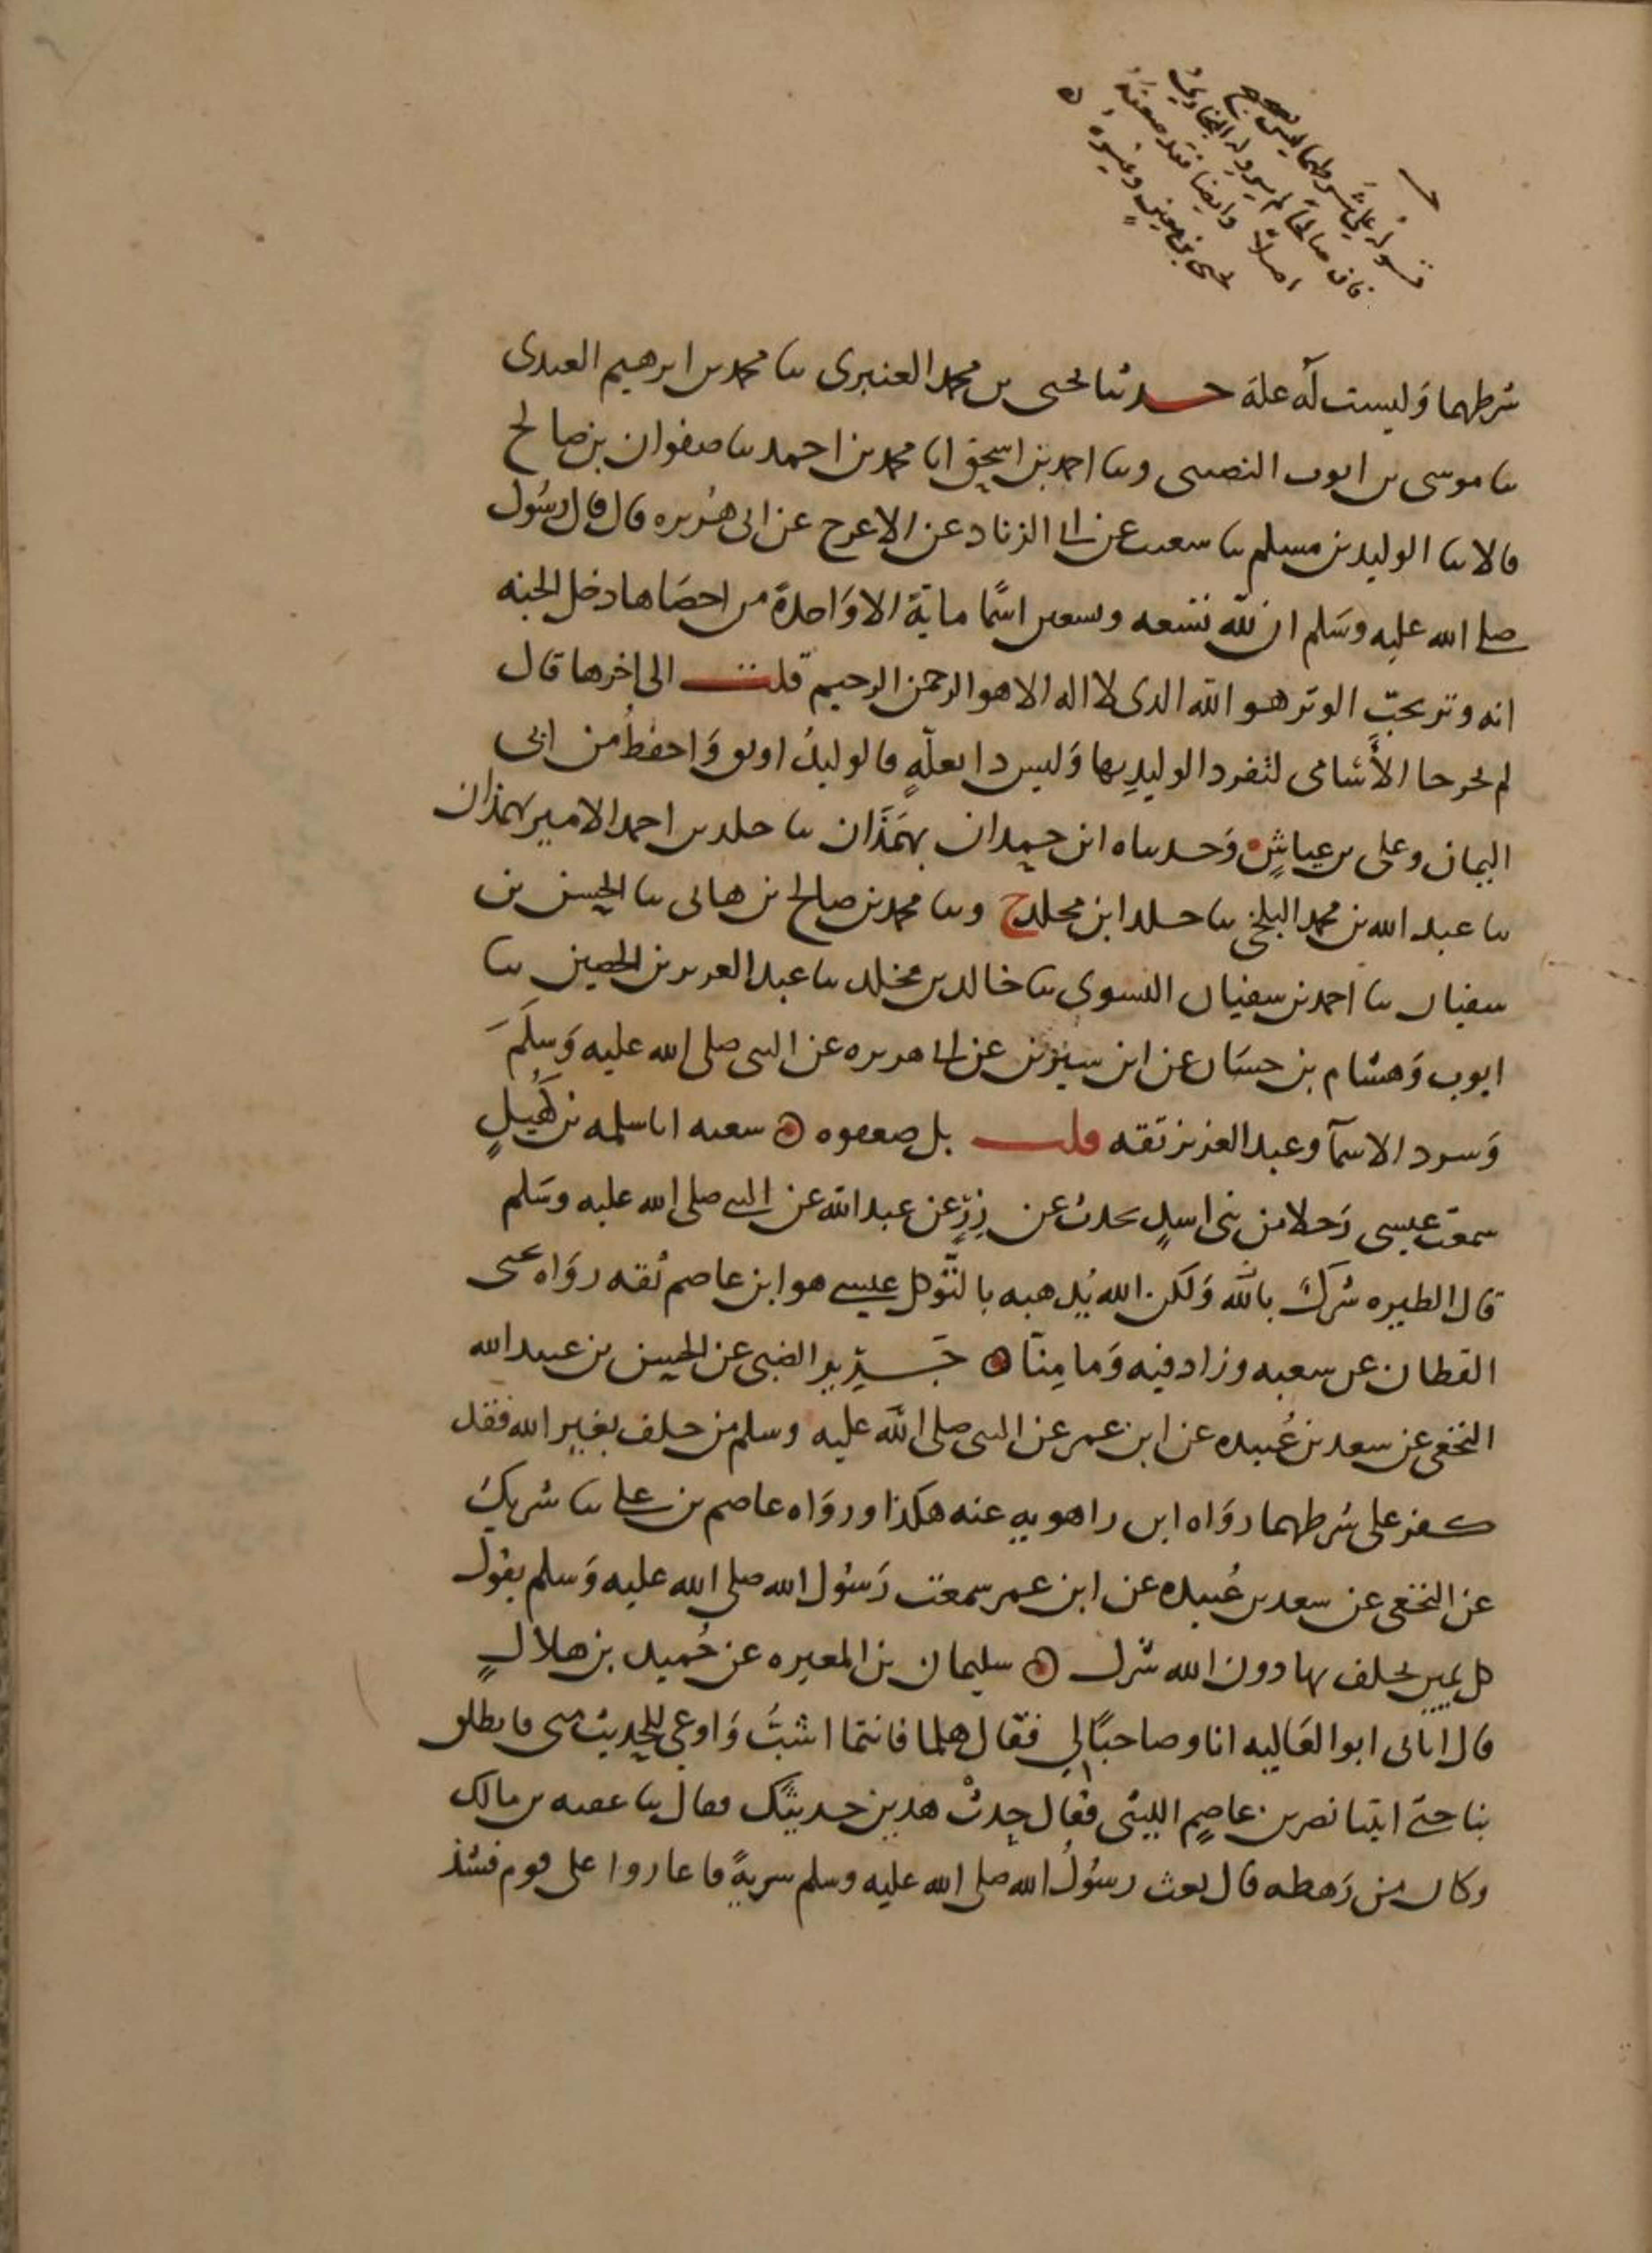 قوله على شرطهما ليس بصحيح
فان صالحا لم يرو له البخاري
اصلا وايضا فقد ضعفه
يحيى بن معين وغيره
شرطهما وليست له علة حدثنا يحيى بن محمد العنبرى ثنا محمد بن ابرهيم العبدى
ثنا موسى بن ايوب النصيبى وثنا احمد بن اسحق انا محمد بن احمد ثنا صفوان بن صالح
قالا ثنا الوليد بن مسلم ثنا شعيب عن ابى الزناد عن الاعرج عن ابى هُريره قال قال رسُول
صلى الله عليه وسَلم ان لله تسعه وتسعين اسمًا ماية الا وَاحدة من احصَاها دخل الجنه
انه وتر يحبّ الوتر هو الله الذى لا اله الا هو الرحمن الرحيم قلت الى اخرها قال
لم يخرجا الأسَامى لتفرد الوليدِ بها وَليس ذا بعلّهٍ فالوليدُ اوثق وَاحفظُ من ابى
اليمان وعلى بن عياشٍ وَحدثناه ابن حمدان بهمَذَان ثنا خلد بن احمد الامير بهمذان
ثنا عبد الله بن محمد البلخى ثنا خلد ابن مخلد ح وثنا محمد بن صالح بن هانى ثنا الحسن بن
سفيان ثنا احمد بن سفيان النسوى ثنا خالد بن مخلد ثنا عبد العزيز بن الحصين ثنا
ايوب وَهشام بن حسَان عن ابن سيرين عن ابى هريره عن النبى صلى الله عليه وَسلمَ
وَسرد الاسمآ وعبد العزيز ثقه قلت بل ضعفوه ۞ شعبه انا سلمه بن كُهيلٍ
سمعت عيسى رَجلا من بنى اسدٍ يحدث عن زِرٍّ عن عبد الله عن النبى صلى الله عليه وسَلم
قال الطيره شركٌ بالله وَلكن الله يُذهبه بالتّوكل عيسى هو ابن عاصم ثقه روَاه يحيى
القطان عن شعبه وزاد فيه وَما مِنّا ۞ جَرير الضبى عن الحسن بن عبيد الله
النخعى عن سعد بن عُبيده عن ابن عمر عن النبى صلى الله عليه وسلم من حلف بغير الله فقد
كفر على شرطهما روَاه ابن راهويه عنه هكذا وروَاه عاصم بن على ثنا شريك
عن النخعى عن سعد بن عُبيده عن ابن عمر سمعت رَسُول الله صلى الله عليه وَسلم يقول
كل يمين يحلف بها دون الله شرك ۞ سليمان بن المغيره عن حُميد بن هلالٍ
قال اتانى ابو العَاليه انا وصاحبًا لى فقال هلما فانتما اشبُّ وَاوعى للحديث منى فانطلق
بنا حتى اتينا نصر بن عاصمٍ الليثى فقال حدثْ هذين حديثك فقال ثنا عقبه بن مالك
وكان من رَهطه قال بعث رسُولُ الله صلى الله عليه وسلم سريةً فاغاروا على قوم فشذ